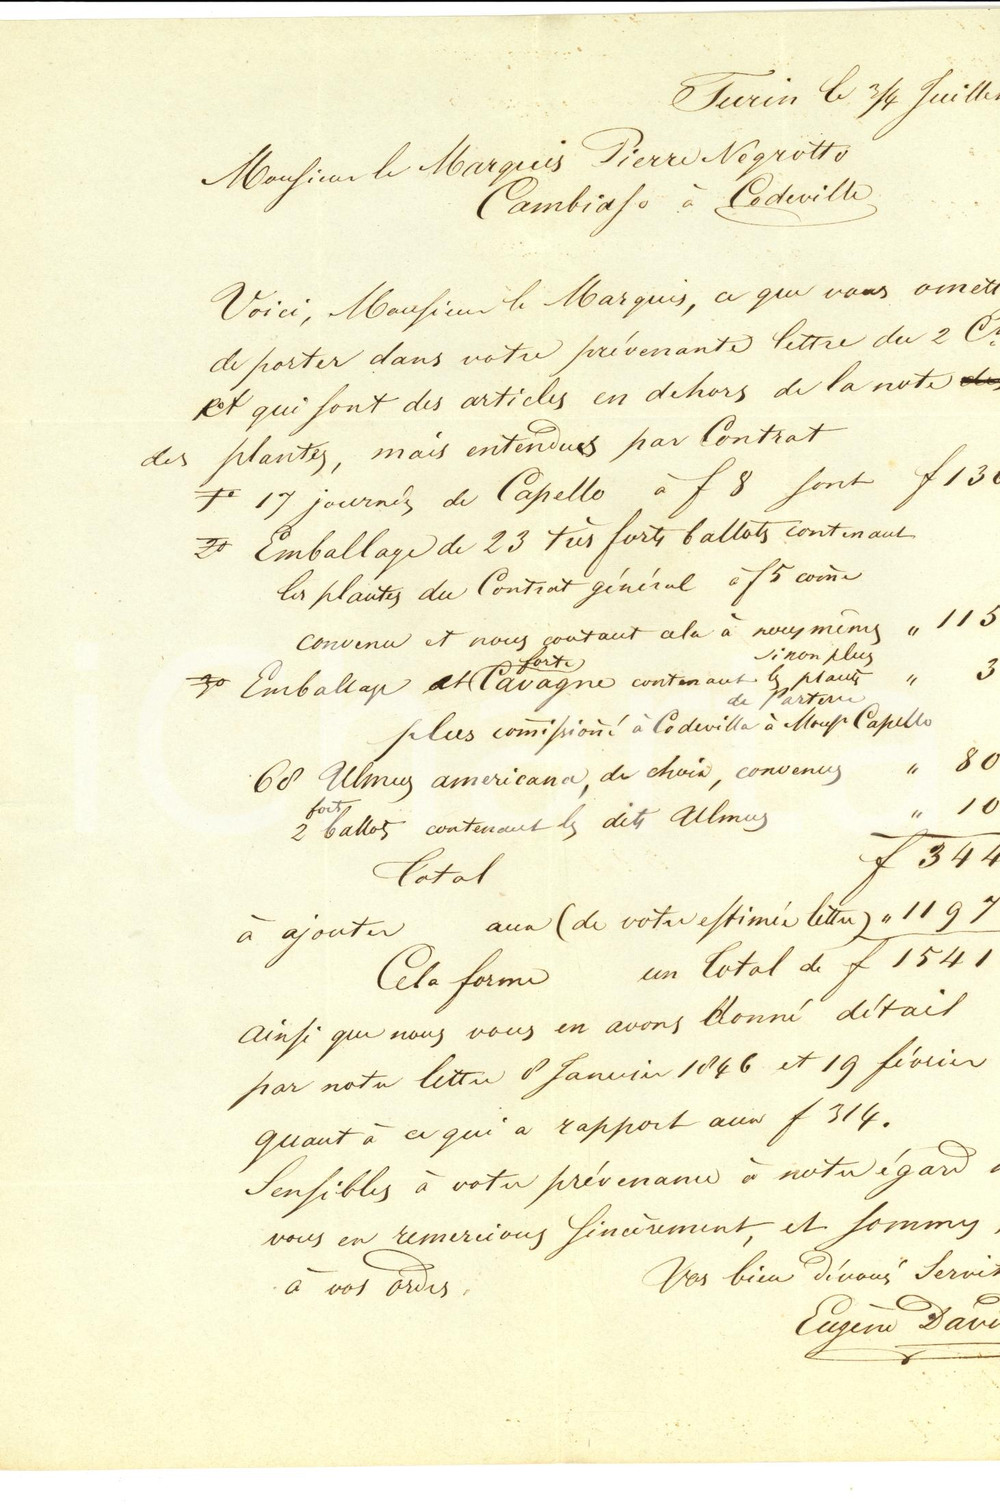 Turin le 3/4 Juille
Monsieur le Marquis Pierre Negrotto
Cambiaso à Codeville
Voici, Monsieur le Marquis, ce que vous omett
de porter dans votre prévenante lettre du 2 Ct
et qui sont des articles en dehors de la note des
des plantes, mais entendues par Contrat
1° 17 journées de Capello à f 8 sont f 136
2° Emballage de 23 très forts ballots contenant
les plantes du Contrat général à f 5 come
convenu et nous coutant cela à nous mêmes " 115
sinon plus
3° Emballage et Cavagne forte contenant les plants " 3
de Parterre
plus comissioné à Codevilla à Monsr Capello
68 Ulmus americana, de choix, convenus " 80
2 forts ballots contenant les dits Ulmus " 10
Total f 344
à ajouter aux (de votre estimée lettre) " 1197
Cela forme un Total de f 1541
ainsi que nous vous en avons donné détail
par notre lettre 8 Janvier 1846 et 19 février
quant à ce qui a rapport aux f 314.
Sensibles à votre prévenance à notre égard
vous en remercions sincèrement, et sommes
à vos ordres. Vos bien dévoués Servit
Eugène Davi